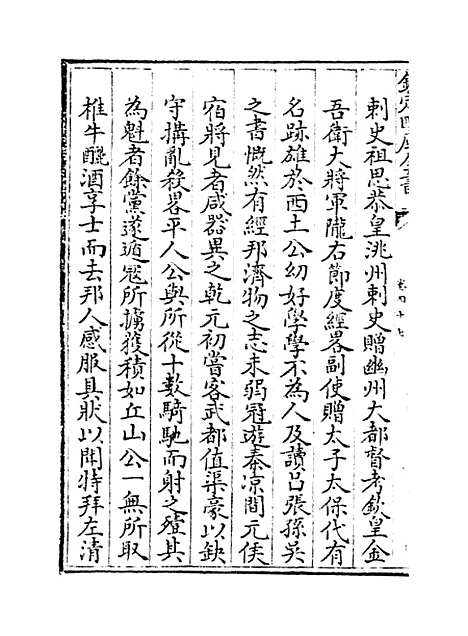 欽定四庫全書
卷四十七
刺史祖思恭皇洮州刺史贈幽州大都督考欽皇金
吾衛大將軍隴右節度經畧副使贈太子太保代有
名跡雄於西土公幼好學學不為人及讀吕張孫吳
之書慨然有經邦濟物之志未弱冠遊秦凉間元侯
宿將見者咸器異之乾元初嘗客武都值渠豪以缺
守搆亂殺畧平人公與所從十數騎馳而射之殪其
為魁者餘黨遂遁冦所擄獲積如丘山公一無所取
椎牛釃酒享士而去邦人感服具狀以聞特拜左清